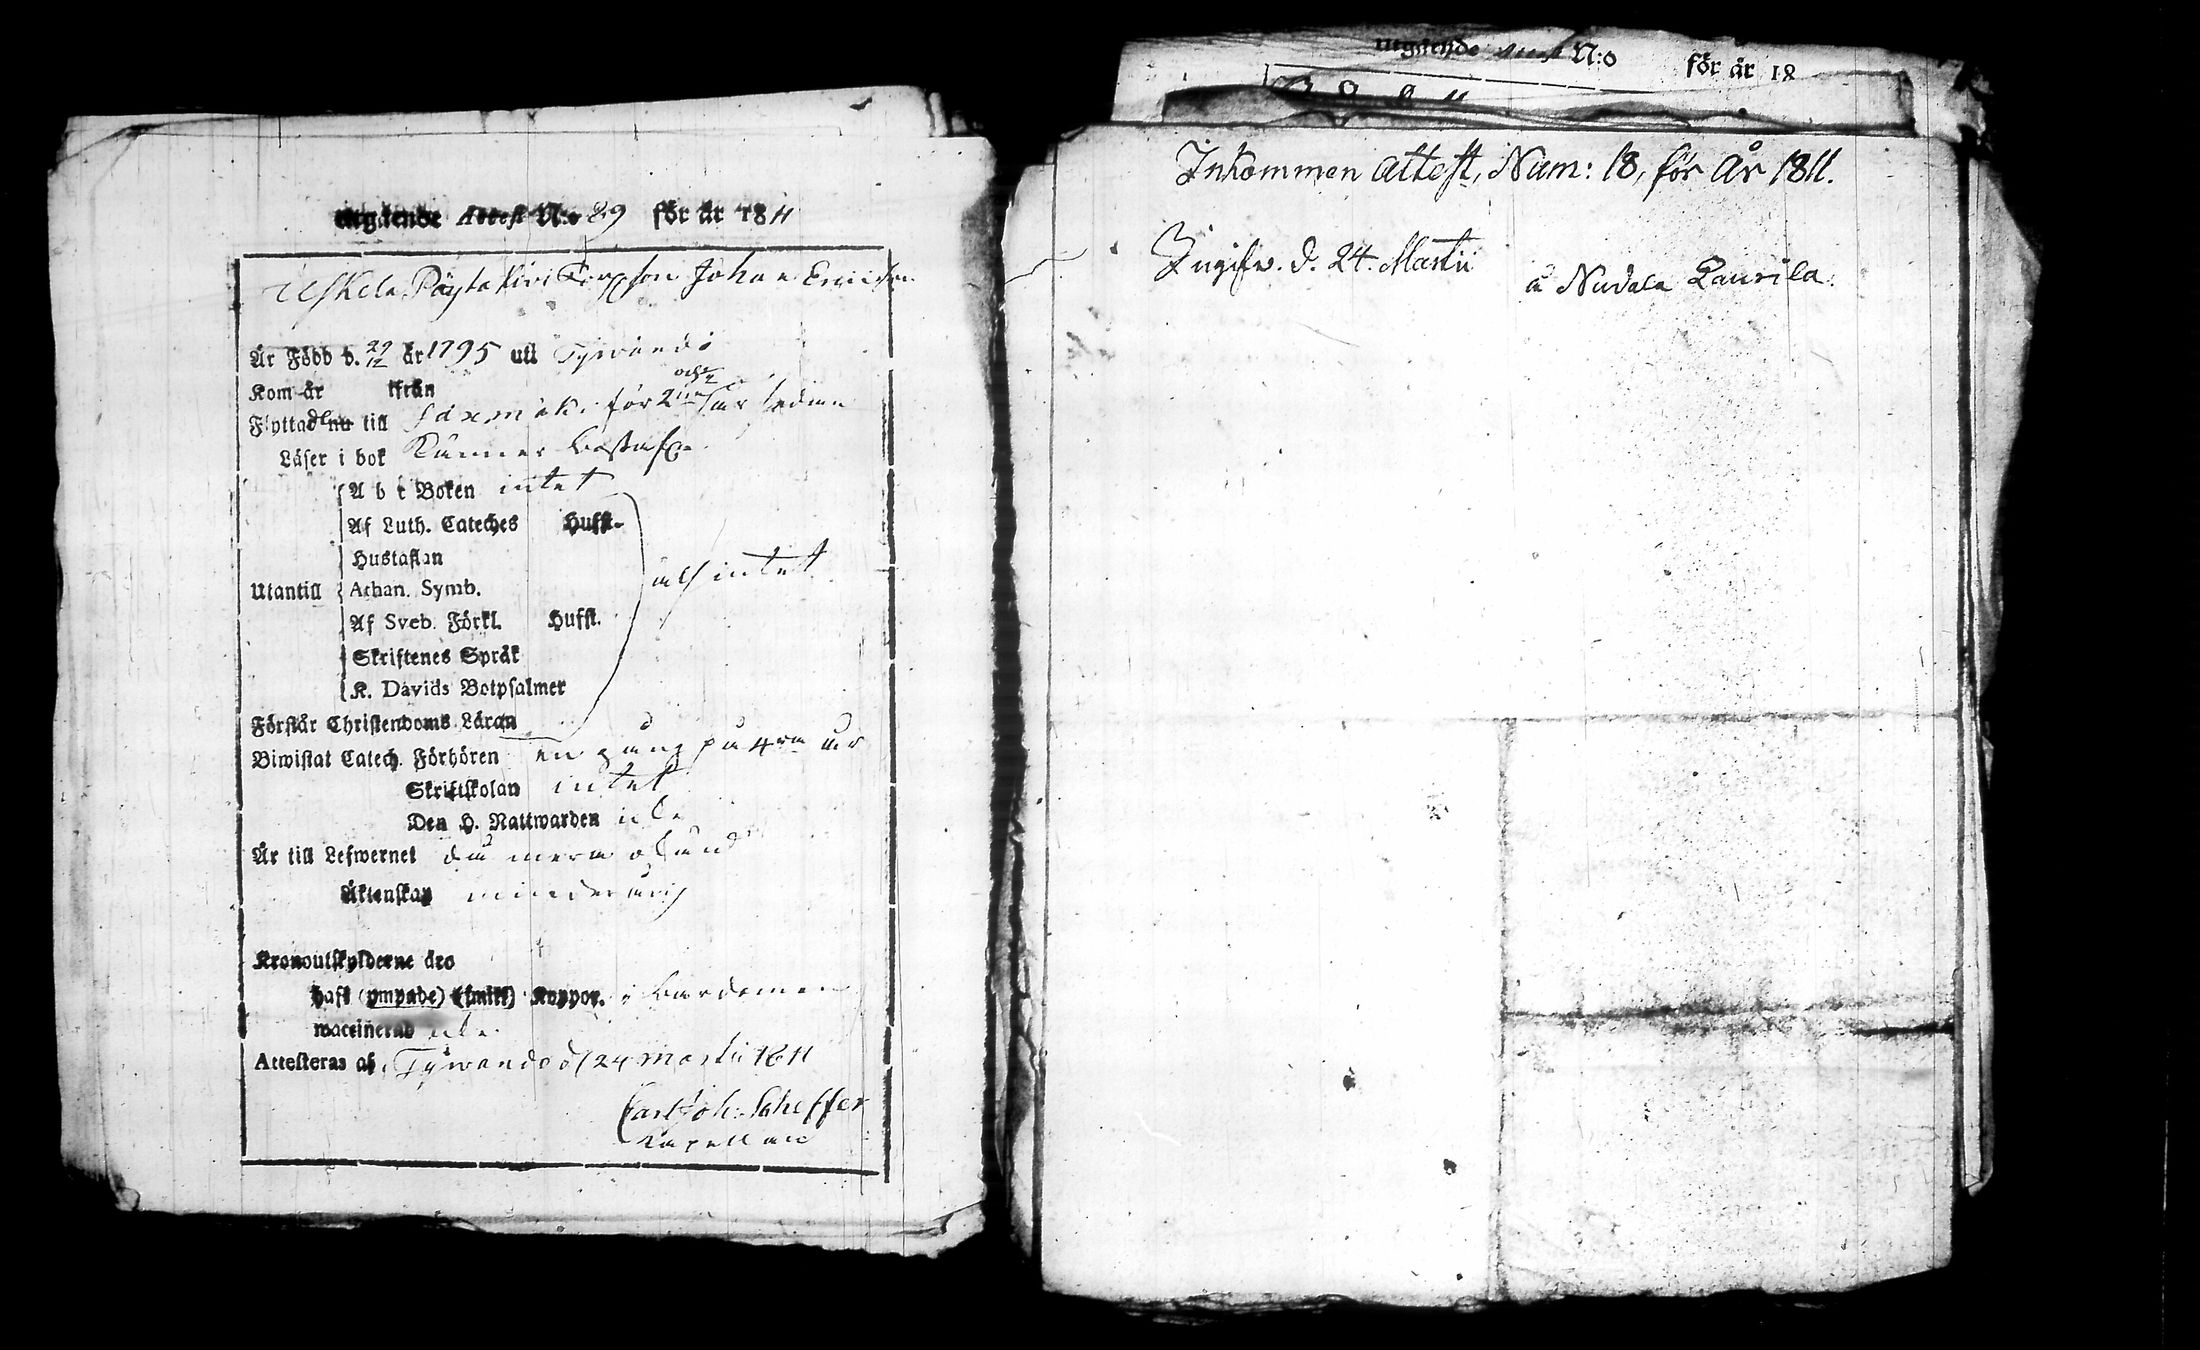 utgående Attest N:o 29 för år 1811
Uskela Pöytäkivi Torpson Johan Ericsson
Är Född d. 29/12 år 1795 uti Tyrwändö
Kom år ifrån
Flyttade nu till Säxmäki för 2ne år sedan
Läser i bok Känner bokstäf
A b c Boken intet
Af Luth. Cateches Hufst.
Hustaflan
Utantill Athan. Symb. alsintet
Af Sveb. Förkl. Hufst.
Skriftenes Språk
K. Davids Botpsalmer
Förstår Christendoms Läran
Biwistat Catech. Förhören en gång på 4ra år
Skriftskolan intet
Den H. Nattwarden icke
Är till Lefwernet
Äktenskap minderårig
Kronoutskylderne äro
haft (ympade) (smitt) Koppor. i barndomen
waccinerad icke
Attesteras af, Tyrwändö d 24 Martii 1811
Carl Joh: Scheffer
Kapellan
utgående Attest N:o för år 18
Inkommen Attest, Num: 18, för År 1811.
Ingifw. d. 24. Martii
å Nudala Laurila.